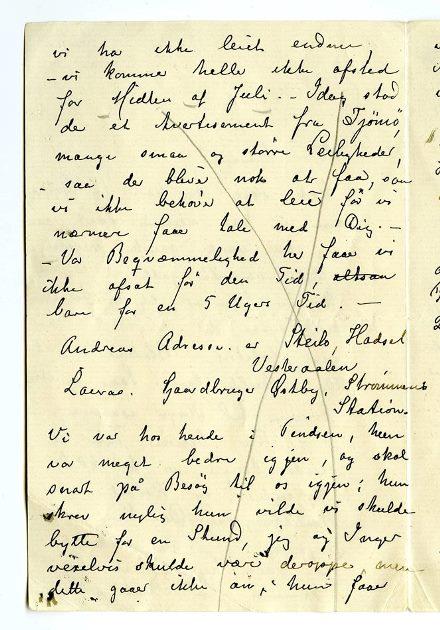 vi har ikke leiet endnu,
– vi komme heller ikke afsted
før Midten af Juli. – Idag stod
der et Avertisement fra Tjömö,
mange smaa og större Leiligheder,
– saa der blive nok at faa, saa
vi ikke behøve at leie før vi
nærmer faar tale med Dig. –
– Vor Beqvæmmelighed her faar vi
ikke afsat før den Tid, altsaa
bare for en 5 Ugers Tid. –
Andreas Adresse er Steilo, Hadsel
Vesteraalen,
Lauras. Gaardbruger Østby, Strømmens
Station.
Vi var hos hende i Pindsen, hun
var meget bedre igjen, og skal
snart på Besøg til os igjen; hun
skrev nylig hun vilde vi skulde
bytte for en Stund, jeg og Inger
vexelvis skulde være deroppe, men
dette gaar ikke an, hun faar